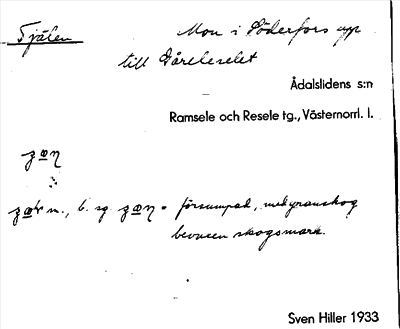 Tjälen
Mon i Söderfors upp
till
Ådalslidens s:n
Ramsele och Resele tg., Västernorrl. l.
m., b. sg = försumpad, med granskog
bevuxen skogsmark.
Sven Hiller 1933